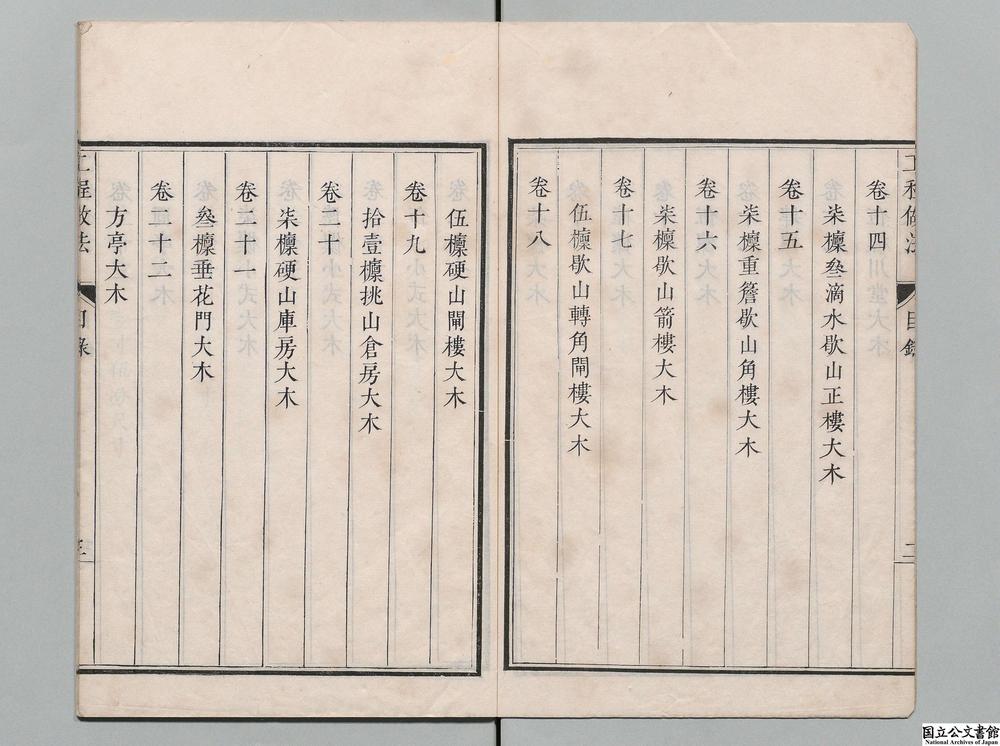 卷十四
柒檁叁滴水歇山正樓大木
卷十五
柒檁重簷歇山角樓大木
卷十六
柒檁歇山箭樓大木
卷十七
伍檁歇山轉角閘樓大木
卷十八
伍檁硬山閘樓大木
卷十九
拾壹檁挑山倉房大木
卷二十
柒檁硬山庫房大木
卷二十一
叁檁垂花門大木
卷二十二
方亭大木
工程做法
目錄
二
工程做法
目錄
三
国立公文書館
National Archives of Japan